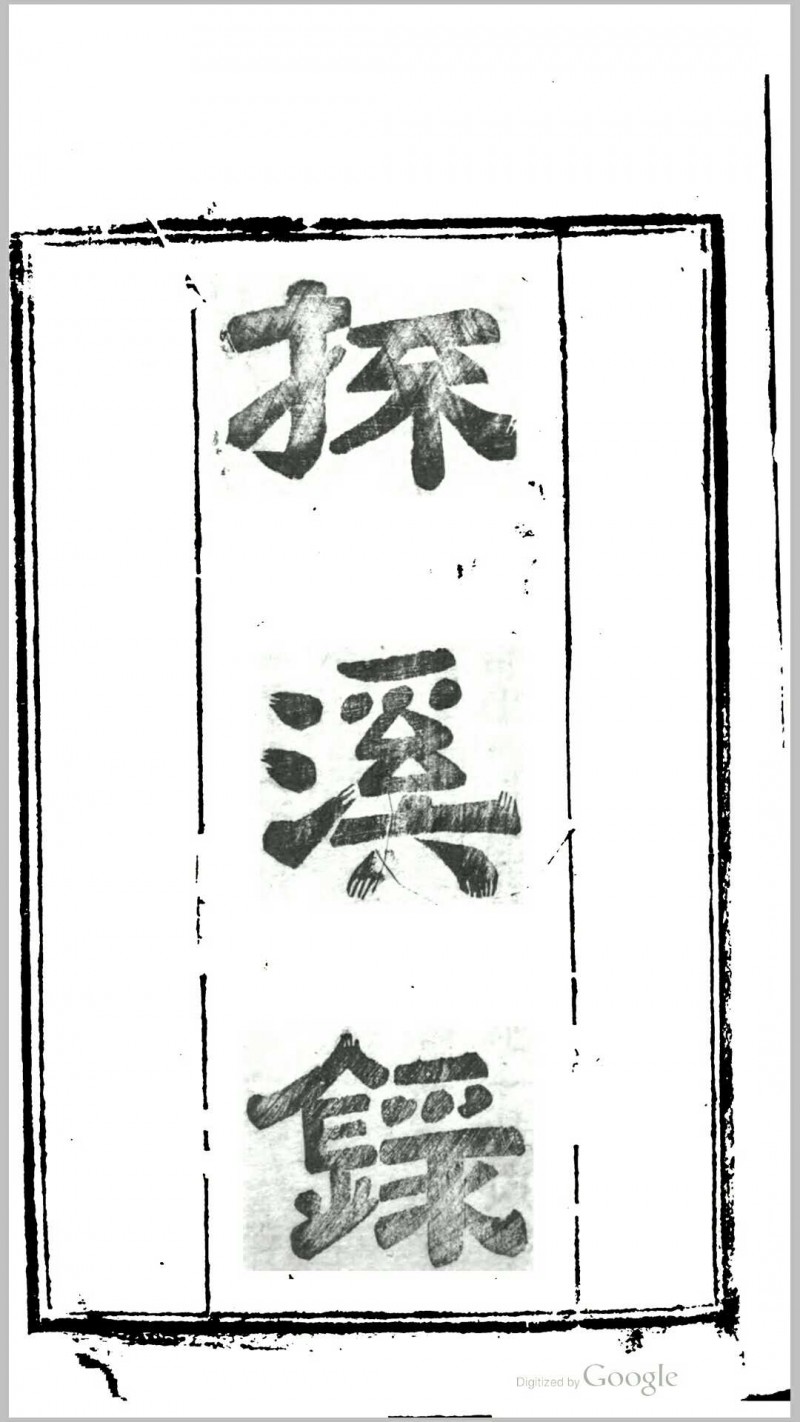 探
溪
錄
Digitized by Google